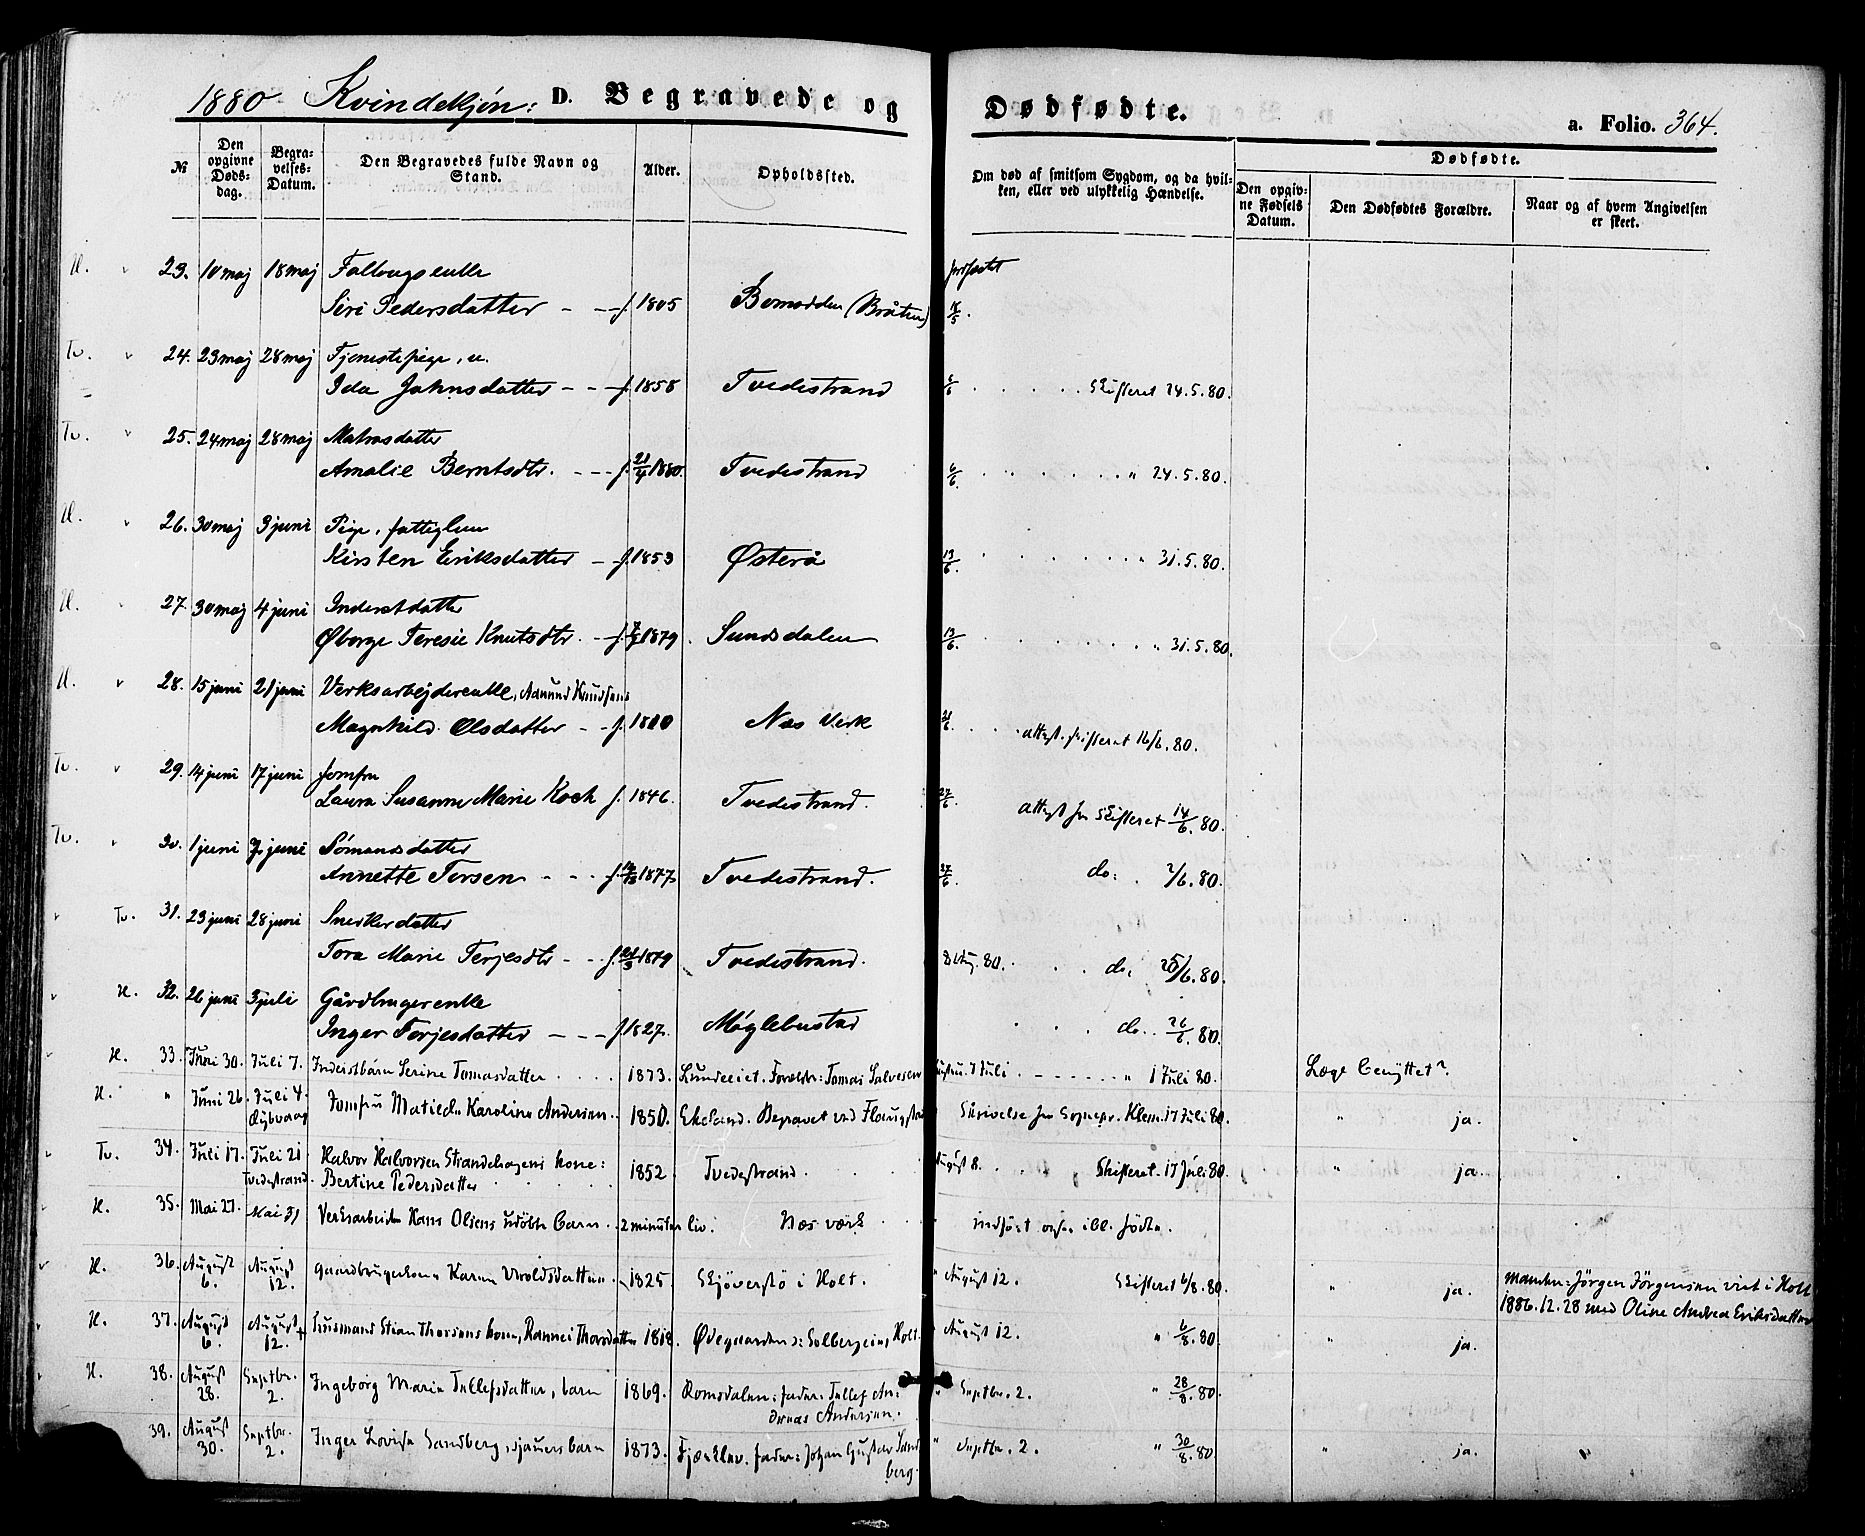 1880 Kvindekjøn: D. Begravede og Dødfødte. a. Folio. 364.
№ Den opgivne Døds-dag. Begra-velses-Datum. Den Begravedes fulde Navn og Stand. Alder. Opholdssted. Om død af smitsom Sygdom, og da hvil-ken, eller ved ulykkelig Hændelse. Dødfødte. Den opgiv-ne Fødsels Datum. Den Dødfødtes Forældre. Naar og af hvem Angivelsen er skeet.
H. 23. 10 maj 18 maj
Siri Pedersdatter - - f. 1805 Bomodden (Bråten)
Tv. 24. 23 maj 28 maj Tjenestepige, u.
Ida Jahnsdatter - - - f. 1858 Tvedestrand 6/6 Skifteret 24.5.80.
Tv. 25. 24 maj 28 maj Matrosdatter
Amalie Berntsdtr. - - - f. 21/4 1880. Tvedestrand 6/6. " 24.5.80.
H. 26. 30 maj 3 juni Pige, fattiglem
Kirsten Eriksdatter - f. 1853 Østerå 13/6. " 31.5.80.
H. 27. 30 maj 4 juni Inderstdatter
Øborge Teresie Knutsdtr. - f. 1879. Sundsdalen 13/6. " 31.5.80.
H. 28. 15 juni 21 juni Verksarbejderenke, Aanund Knudsens
Magnhild Olsdatter - - f. 1800 Næs Verk attest skifteret 16/6.80.
Tv. 29. 14 juni 17 juni Jomfru
Laura Susanne Marie Koch f. 1846. Tvedestrand. 27/6. attest fra Skifteret 14/6.80.
Tv. 30. 1 juni 7 juni Sömandsdatter
Annette Torsen - - - f. 1877. Tvedestrand. 27/6. do: 2/6.80.
Tv. 31. 23 juni 28 juni Snekkerdatter
Tora Marie Terjesdtr - - f. 21/3 1879 Tvedestrand. 8 Aug. 80. do. 25/6.80
H. 32. 26 juni 3 juli Gårdbrugerenke
Inger Terjesdatter - - - f. 1827. Møglebustad do. 26/6.80.
H. 33. Juni 30. Juli 7. Inderstbarn Serine Tomasdatter 1873. Lundeeiet. Forældr: Tomas Salvesen 7 Juli " 1 Juli 80. Læge benyttet?
H. " Juni 26. Juli 4. Dybvaag Jomfru Matilda Karoline Andersen. 1850. Ekeland. Begravet ved Skrivelse fra Sognepr. Klem. 17 Juli 80. " ja.
Tv. 34. Juli 17. Juli 21. Halvor Halvorsen Strandskogens kone:
Tvedestrand. Bertine Pedersdatter 1852 Tvedestrand. August 8. Skifteret. 17 Juli 80. " ja.
H. 35. Mai 27. Mai 31 Verksarbeider Hans Olsens udöbte barn. 2 minuter liv. Næs værk indført ogsaa i bl. fødte.
H. 36. August 6. August 12. gaardbrugerkone Karen Uvoldsdatter. 1825. Skjöverstö i Holt. " August 12. Skifteret 6/8.80. " ja. manden: Jörgen Jörgensen viet i Holt
1886.12.28 med Oline Andrea Eriksdatter
H. 37. August 6. August 12. husmand Stian Thorsens kone, Rannei Thorsdatter 1818. Ødegaarden : Solbergeiet, Holt. " August 12. " 6/8.80 " ja.
H. 38. August 28. Septbr. 2. Ingeborg Maria Tellefsdatter, barn 1869. Romsdalen: fader: Tellef An-
dreas Andersen. " Septbr. 2. " 28/8.80
39. August 30. Septbr. 2. Inger Lovisa Sandberg, sjauers barn 1873. Fjærkleiv. fader: Johan Gustav Sand
berg. " Septbr. 2. " 30/8.80 " ja. "